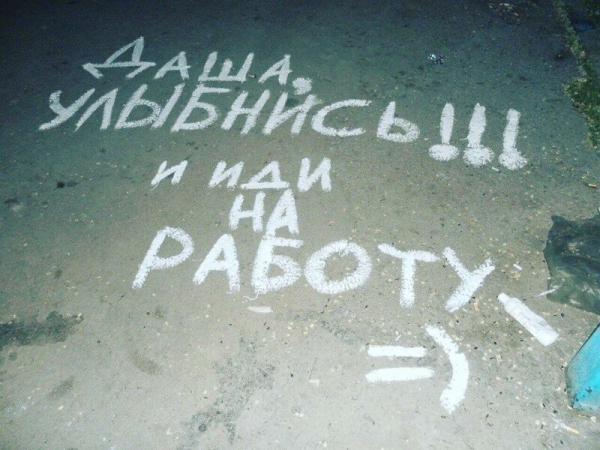 ДАША,
УЛЫБНИСЬ!!!
И ИДИ
НА
РАБОТУ
=)